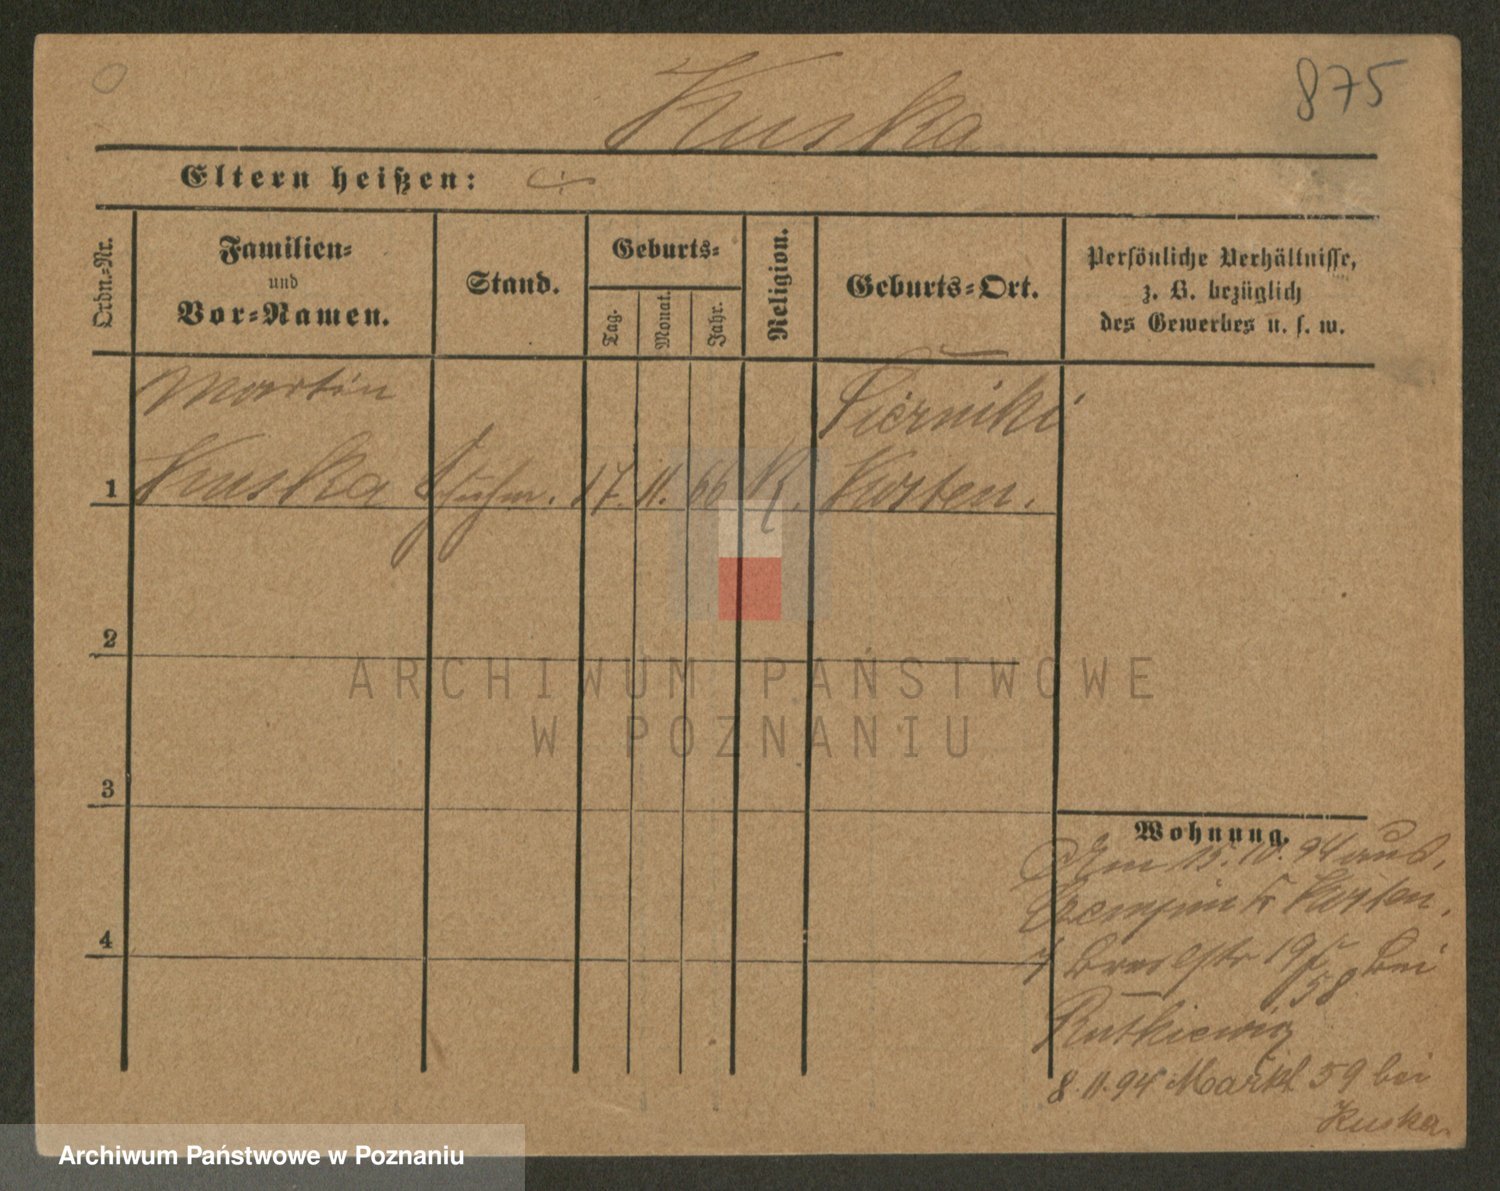 875
Kuska
Eltern heißen:
Ordn.=Nr.
Familien=
und
Vor=Namen.
Stand.
Geburts=
Tag.
Monat.
Jahr.
Religion.
Geburts=Ort.
Persönliche Verhältnisse,
z. B. bezüglich
des Gewerbes u. s. w.
Martin
Kuska
1
17. 11. 66 K.
Kosten.
2
3
4
Wohnung.
Am 15. 10. 94 aus
Czempin Kr Kosten.
19 bei
58
Rutkiewicz
8. 11. 94 Markt 59 bei
Kuska.
ARCHIWUM PAŃSTWOWE
W POZNANIU
Archiwum Państwowe w Poznaniu